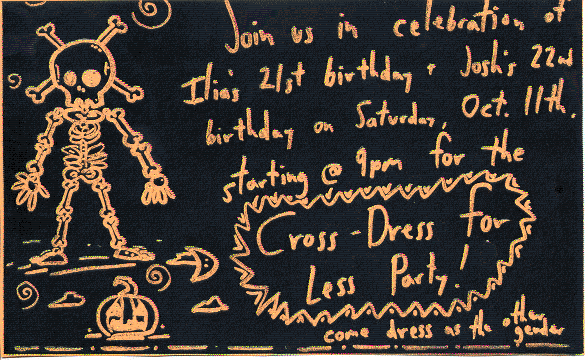 Join us in celebration of
Ilia's 21st birthday & Josh's 22nd
birthday on Saturday, Oct. 11th.
starting @ 9pm for the
Cross-Dress for
Less Party!
come dress as the other
gender